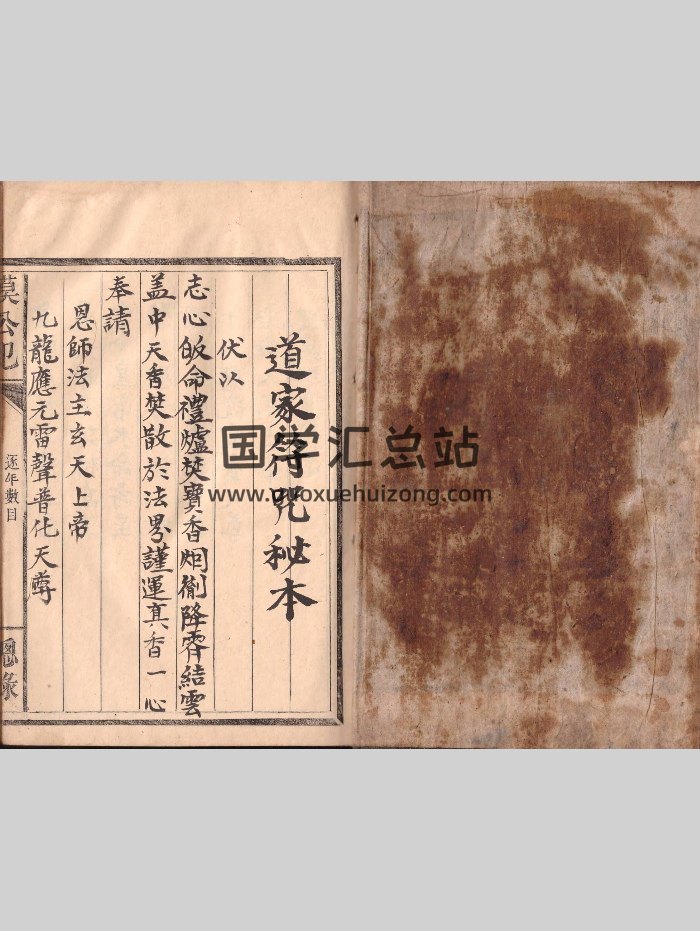 道家符咒秘本
伏以
志心皈命禮爐焚寶香烟衝降霄結雲
盖中天香焚散於法界謹運真香一心
奉請
恩師法主玄天上帝
九龍應元雷聲普化天尊
逐年數目
国学汇总站
www.guoxuehuizong.com